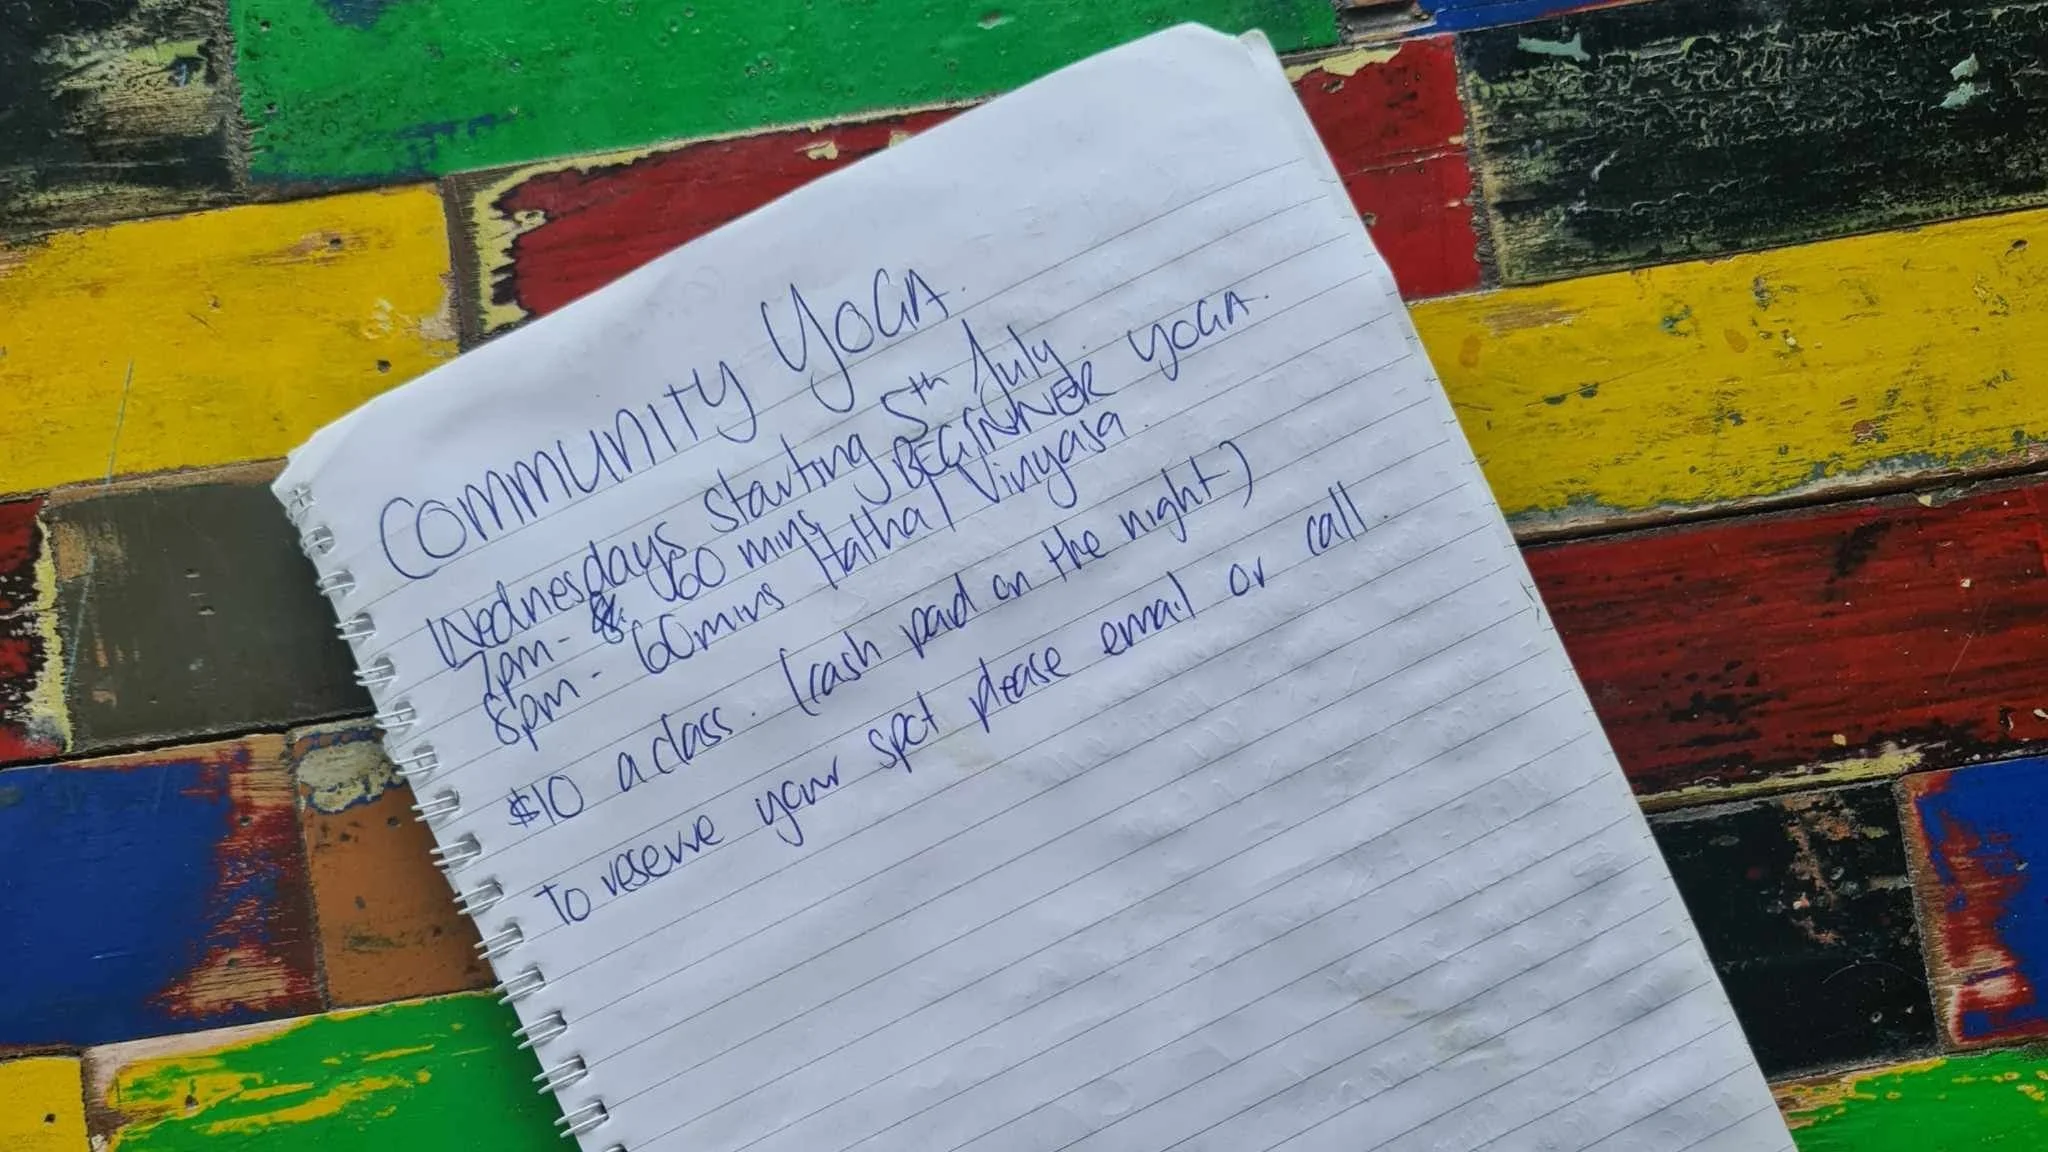 COMMUNITY YOGA.
Wednesdays starting 5th July.
7pm - 60 mins BEGINNER YOGA.
8pm - 60mins Hatha / Vinyasa.
$10 a class. (cash paid on the night)
To reserve your spot please email or call.